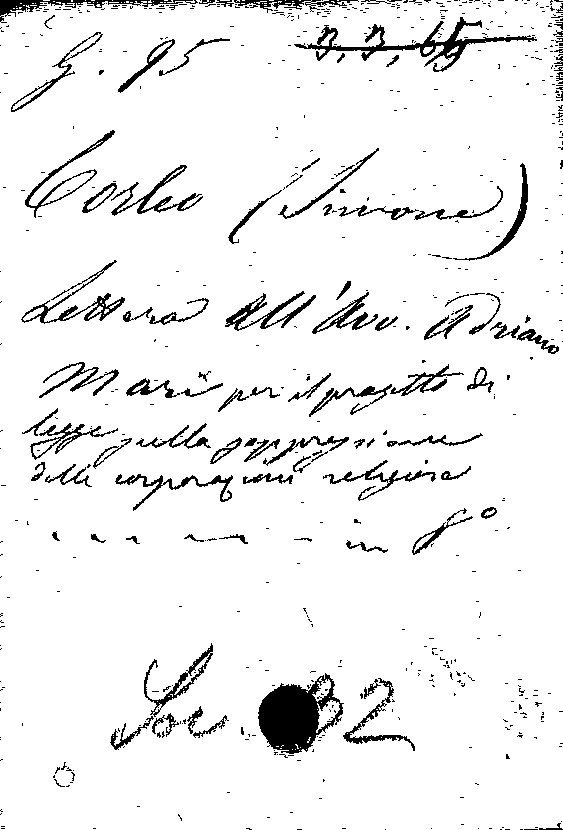 G. 95 3, 3, 65
Corleo (Simone)
Lettera all'Avv. Adriano
Mari per il progetto di
legge sulla soppressione
delle corporazioni religiose
in 8°
Soc. 32